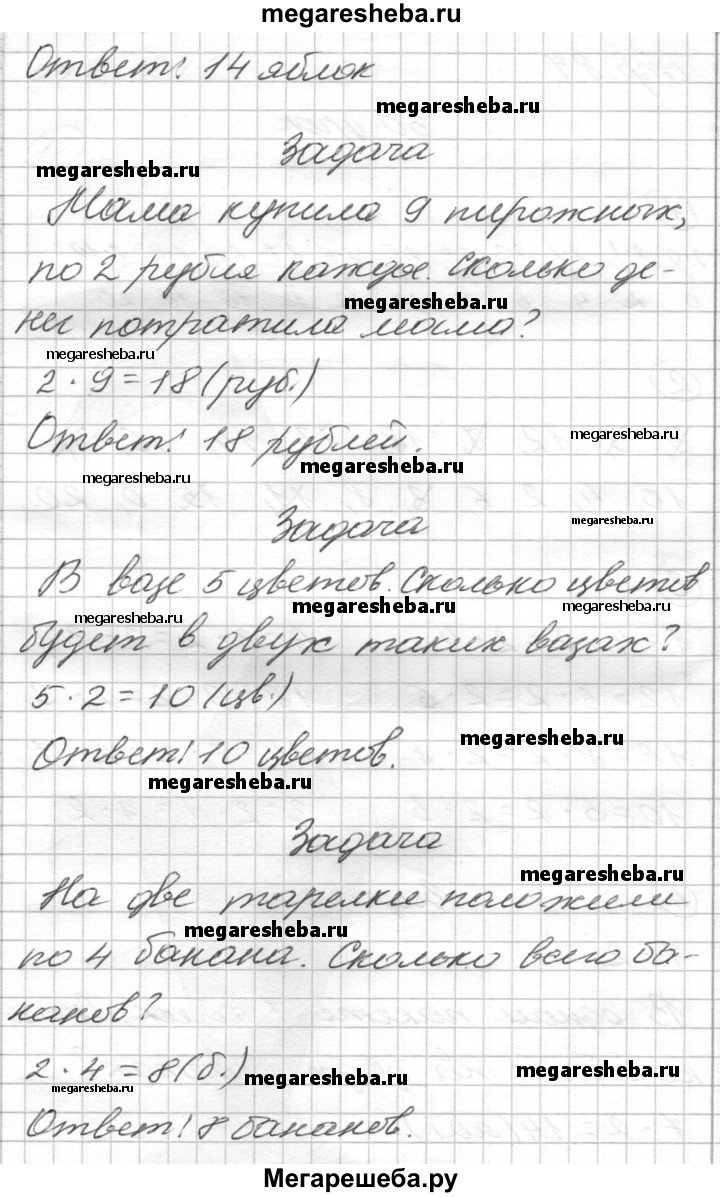 megaresheba.ru
Ответ: 14 яблок
megaresheba.ru
Задача
megaresheba.ru
Мама купила 9 пирожных,
по 2 рубля каждое. Сколько де-
megaresheba.ru
нег потратила мама?
megaresheba.ru
2 · 9 = 18 (руб.)
Ответ: 18 рублей.
megaresheba.ru
megaresheba.ru
megaresheba.ru
Задача
megaresheba.ru
В вазе 5 цветов. Сколько цветов
megaresheba.ru
megaresheba.ru
megaresheba.ru
будет в двух таких вазах?
5 · 2 = 10 (цв.)
Ответ: 10 цветов.
megaresheba.ru
megaresheba.ru
Задача
megaresheba.ru
На две тарелки положили
megaresheba.ru
по 4 банана. Сколько всего ба-
нанов?
2 · 4 = 8 (б.)
megaresheba.ru
megaresheba.ru
megaresheba.ru
Ответ: 8 бананов.
Мегарешеба.ру